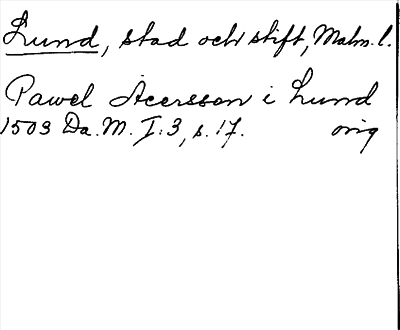 Lund, stad och stift, Malm. l.
Pawel Acersson i Lund
1503 Da. M. I:3, s. 17. orig